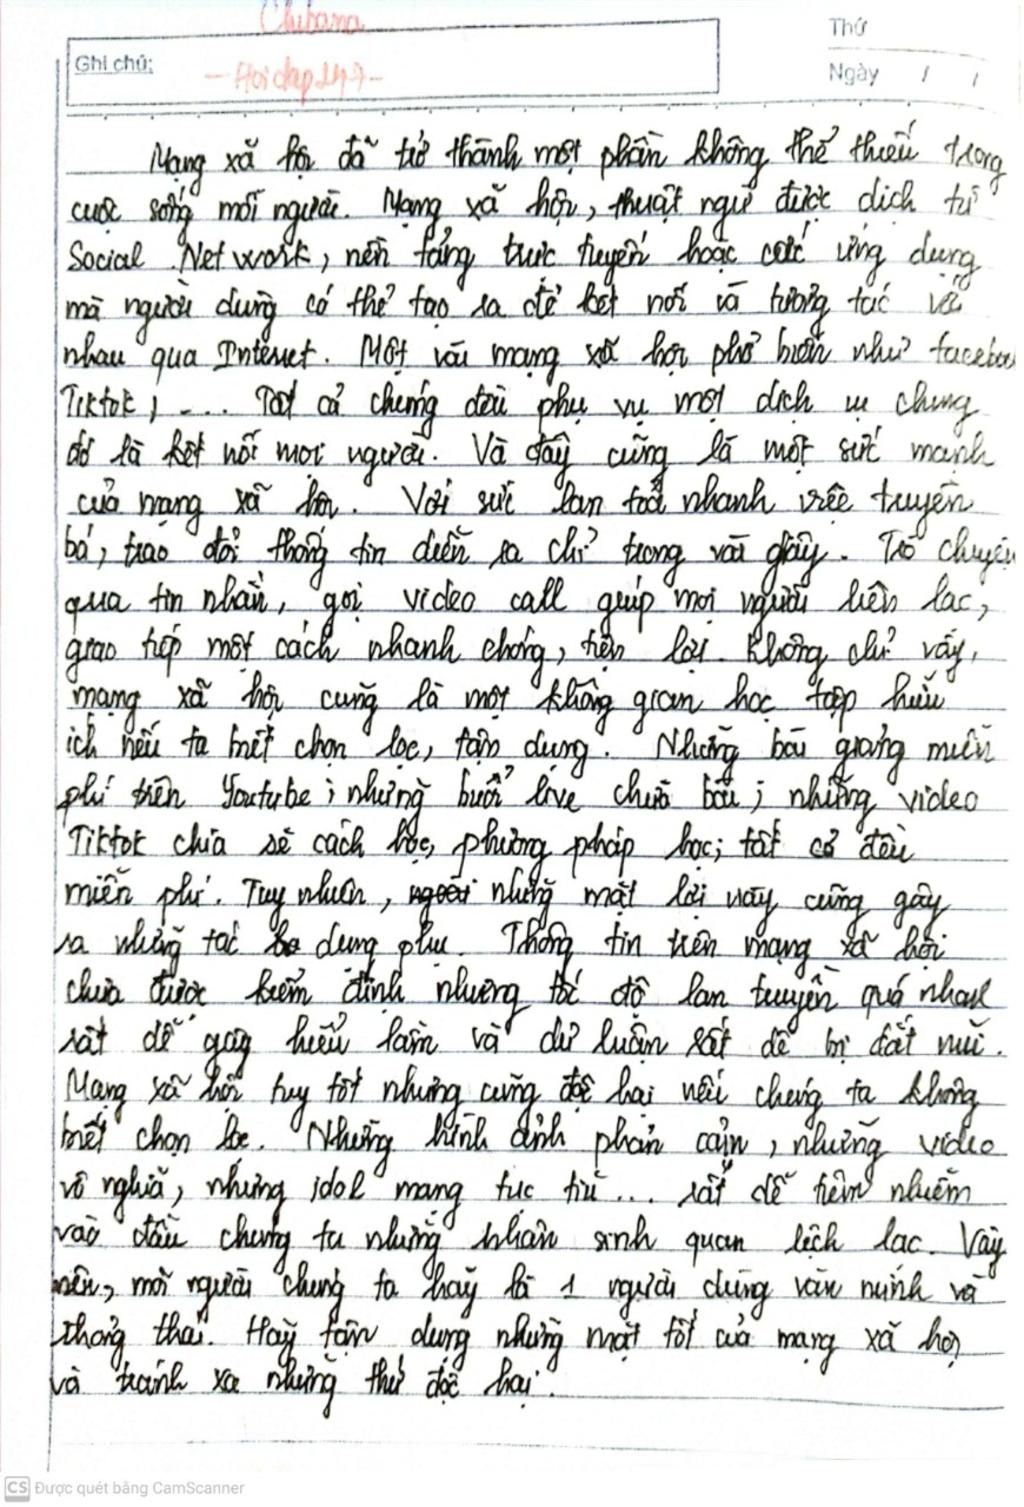 Chibana
Thứ
Ghi chú:
- Hoidap247 -
Ngày / /
Mạng xã hội đã trở thành một phần không thể thiếu trong
cuộc sống mỗi người. Mạng xã hội, thuật ngữ được dịch từ
Social Network, nền tảng trực tuyến hoặc các ứng dụng
mà người dùng có thể tạo ra để kết nối và tương tác với
nhau qua Internet. Một vài mạng xã hội phổ biến như facebook
Tiktok, .... Tất cả chúng đều phụ vụ một dịch vụ chung
đó là kết nối mọi người. Và đây cũng là một sức mạnh
của mạng xã hội. Với sức lan toả nhanh việc truyền
bá, trao đổi thông tin diễn ra chỉ trong vài giây. Trò chuyện
qua tin nhắn, gọi video call giúp mọi người liên lạc,
giao tiếp một cách nhanh chóng, tiện lợi. Không chỉ vậy,
mạng xã hội cũng là một không gian học tập hữu
ích nếu ta biết chọn lọc, tận dụng. Những bài giảng miễn
phí trên Youtube; những buổi live chữa bài; những video
Tiktok chia sẻ cách học, phương pháp học; tất cả đều
miễn phí. Tuy nhiên, ngoài những mặt lợi này cũng gây
ra những tác dụng phụ. Thông tin trên mạng xã hội
chưa được kiểm định nhưng tốc độ lan truyền quá nhanh
rất dễ gây hiểu lầm và dư luận rất dễ bị dắt mũi.
Mạng xã hội tuy tốt nhưng cũng độc hại nếu chúng ta không
biết chọn lọc. Những hình ảnh phản cảm, những video
vô nghĩa, những idol mạng tục tĩu... rất dễ tiêm nhiễm
vào đầu chúng ta những nhân sinh quan lệch lạc. Vậy
nên, mỗi người chúng ta hãy là 1 người dùng văn minh và
thông thái. Hãy tận dụng những mặt tốt của mạng xã hội
và tránh xa những thứ độc hại.
CS Được quét bằng CamScanner